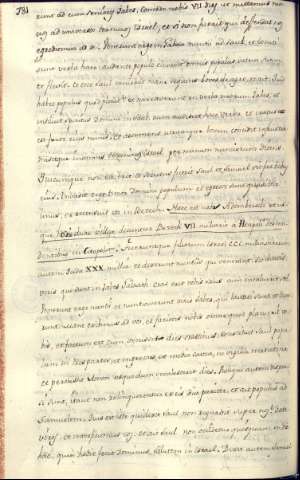 781
runt ad eum seniores Jabes, Concede nobis VII dies ut mittamus nun
tios ad universos terminos Israel, et si non fuerit qui defendat nos
egrediemur ad te. Venerunt ergo in Gabaa nuntii ad Saul, et locuti
sunt verba haec audiente populo et levavit omnis populus vocem suam
et flevit. et ecce Saul veniebat sequens boves de agro, et ait: Quid
habet populus quod plorat? et narraverunt ei verba virorum Jabes, et
insilivit spiritus Domini in Saul cum audisset haec verba, et iratus
est furor eius nimis, et assumens utrumque bovem concidit in frusta
misitque in omnes terminos Israel per manum nunciorum dicens.
Quicumque non exierit et secutus fuerit Saul, et Samuel sic fiet bobus
eius. Invasit ergo timor Domini populum et egressi sunt quasi vir
unus, et recensuit eos in Bezech. Haec est
VII
Fueruntque filiorum Israel CCC millia virorum
autem Juda XXX millia et dixerunt nuntiis qui venerant. Sic dicetis
viris qui sunt in Jabes Galaad. Cras erit vobis salus cum incaluerit sol.
Venerunt ergo nuntii, et nuntiaverunt viris Jabes, qui laetati sunt, et dixe
runt: mane exibimus ad vos, et facietis nobis omne quod placuerit vo
bis. et factum est cum venisset dies crastinus, constituit Saul popu
lum in tres partes, et ingressus est media castra in vigilia matutina
et percussit Ammon usque dum incalesceret dies. Reliqui autem dispersi
sunt, ita ut non relinquerentur in eis duo pariter, et ait populus ad
Samuelem. Quis est iste qui dixit Saul non regnabit super nos? Date
viros, et interficiemus eos, et ait Saul non occidetur quisquam in die
hac, quia hodie fecit Dominus salutem in Israel. Dixit autem Samuel